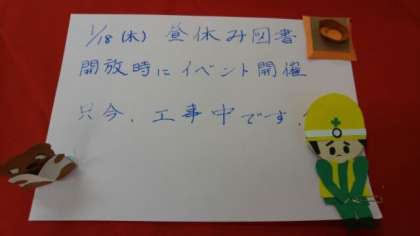 1/18(木) 昼休み図書
開放時にイベント開催
只今、工事中です。